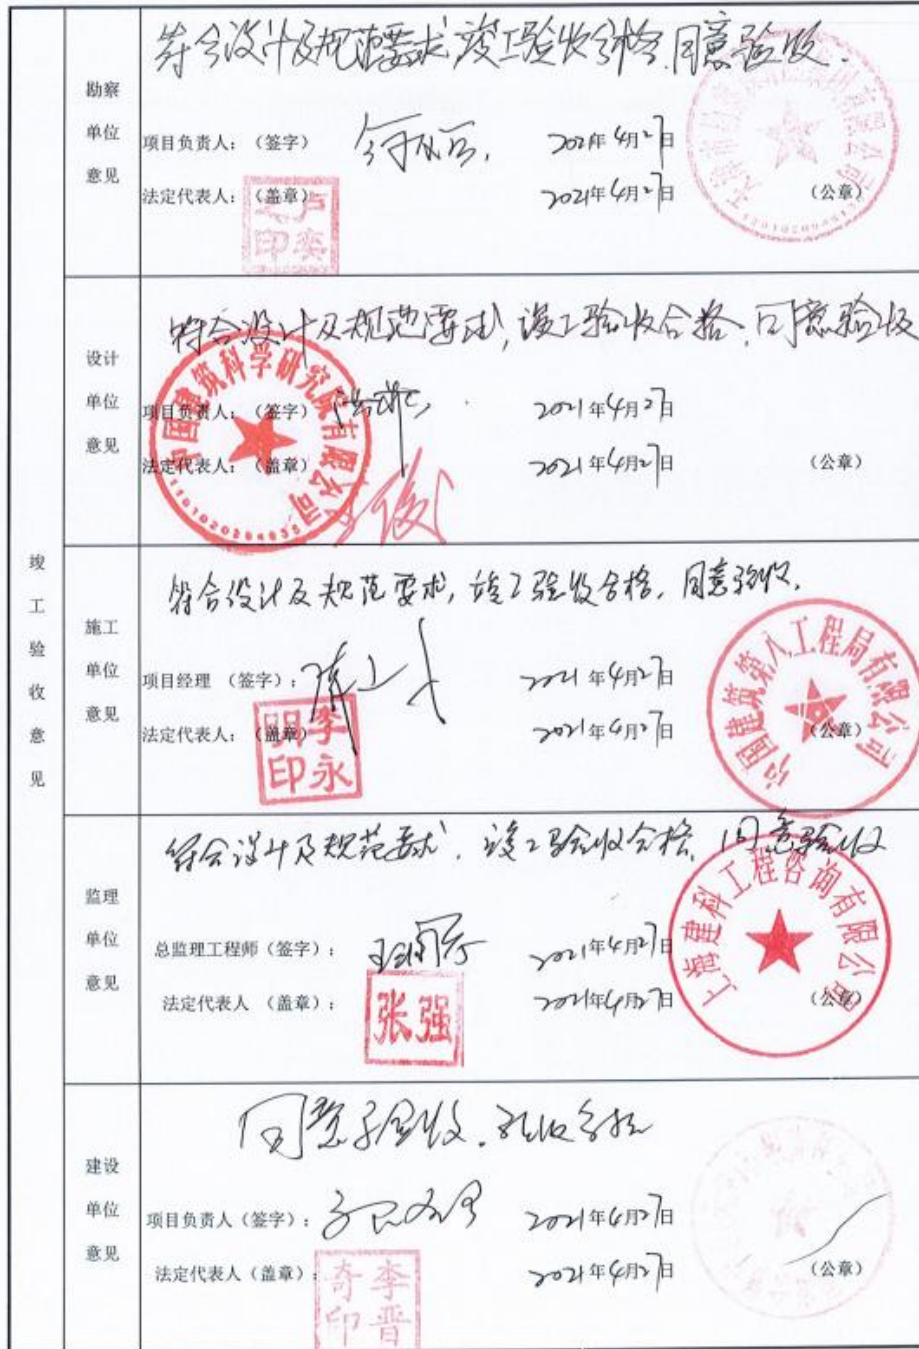 竣工验收意见
勘察单位意见
符合设计及规范要求,竣工验收合格,同意验收.
项目负责人:(签字) 2021年4月27日
法定代表人:(盖章) 2021年4月27日 (公章)
设计单位意见
符合设计及规范要求,竣工验收合格,同意验收
项目负责人:(签字) 2021年4月27日
法定代表人:(盖章) 2021年4月27日 (公章)
中国建筑科学研究院有限公司
施工单位意见
符合设计及规范要求,竣工验收合格,同意验收.
项目经理 (签字): 2021年4月27日
法定代表人:(盖章) 2021年4月27日 (公章)
李永明印
中国建筑第八工程局有限公司
监理单位意见
符合设计及规范要求.竣工验收合格,同意验收
总监理工程师(签字): 2021年4月27日
法定代表人 (盖章): 2021年4月27日 (公章)
张强
上海建科工程咨询有限公司
建设单位意见
同意验收.验收合格
项目负责人(签字): 2021年4月27日
法定代表人(盖章): 2021年4月27日 (公章)
李晋奇印